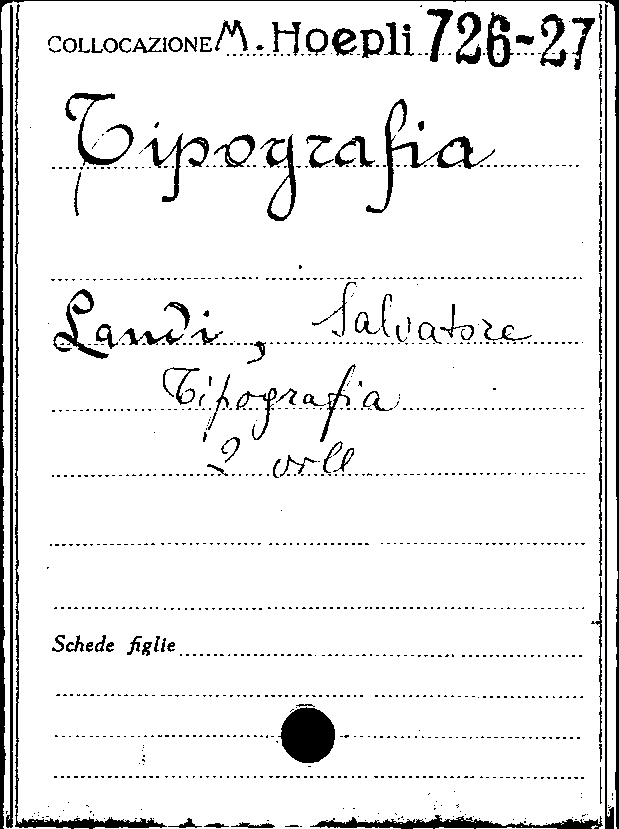 COLLOCAZIONE M. Hoepli 726-27
Tipografia
Landi, Salvatore
Tipografia
2 voll
Schede figlie